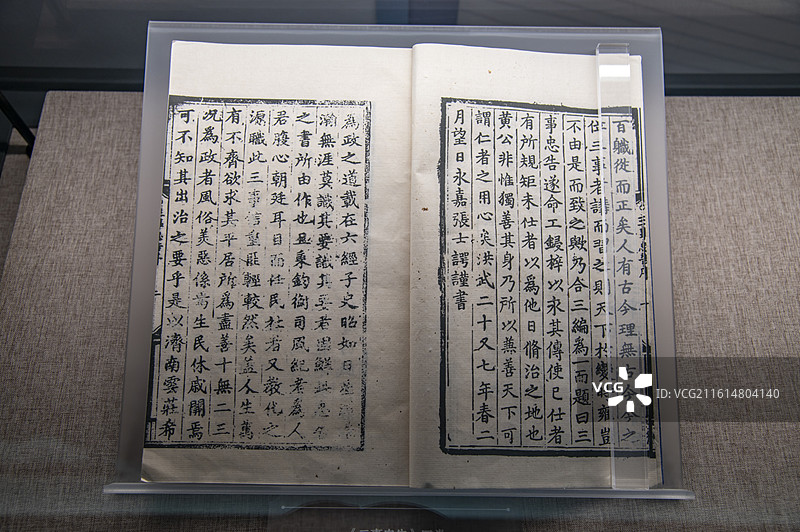 百軄從而正矣人有古今理無古今之
任三事者講而習之則天下於變雍豈
不由是而致之歟乃合三編為一而題曰三
事忠告遂命工鋟梓以求其傳使已仕者
有所規矩未仕者以為他日脩治之地也
黄公非惟獨善其身乃所以兼善天下可
謂仁者之用心矣洪武二十又七年春二
月望日永嘉張士謹書
為政之道載在六經子史昭如日星
瀚無涯莫識其要識其要者固鮮忠
之書所由作也且秉鈞衡司風紀者為人
君腹心朝廷耳目而任民社者又敎化之
源職此三事信望匪輕較然矣蓋人生萬
有不齊欲求其平居所為盡善十無二三
况為政者風俗美惡係焉生民休戚關焉
可不知其出治之要乎是以濟南雲莊希
VCG
ID: VCG211614804140